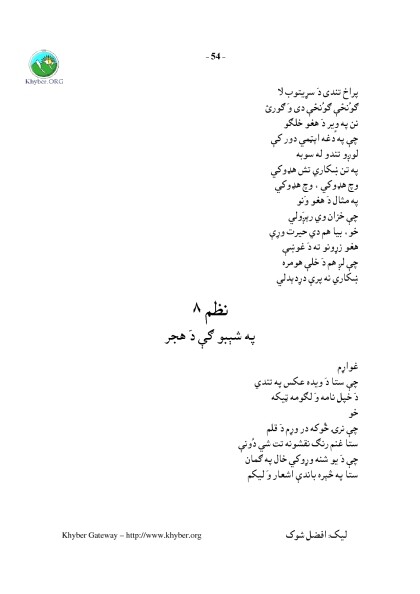 - 54 -
Khyber.ORG
پراخ تندی دَ سړيتوب لا
ګونځې ګونځې دی وَ ګورئ
نن په وير دَ هغو خلګو
چې په دغه ايټمي دور کې
لوږو تندو له سوبه
په تن ښکاري تش هډوکي
وچ هډوکي ، وچ هډوکي
په مثال دَ هغو وَنو
چې خزان وي رېژولي
خو، بيا هم دي حيرت وړي
هغو زړونو ته دَ غوښې
چې لږ هم دَ خلې هومره
ښکاري نه پرې دردېدلي
نظم ۸
په شېبو کې دَ هجر
غواړم
چې ستا دَ ويده عکس په تندي
دَ خپل نامه وَ لګومه ټيکه
خو
چې نرۍ څوکه در وړم دَ قلم
ستا غنم رنګ نقشونه تت شي دُونې
چې دَ يو شنه وړوکي خال په ګمان
ستا په څېره باندې اشعار وَ ليکم
ليک: افضل شوک
Khyber Gateway – http://www.khyber.org